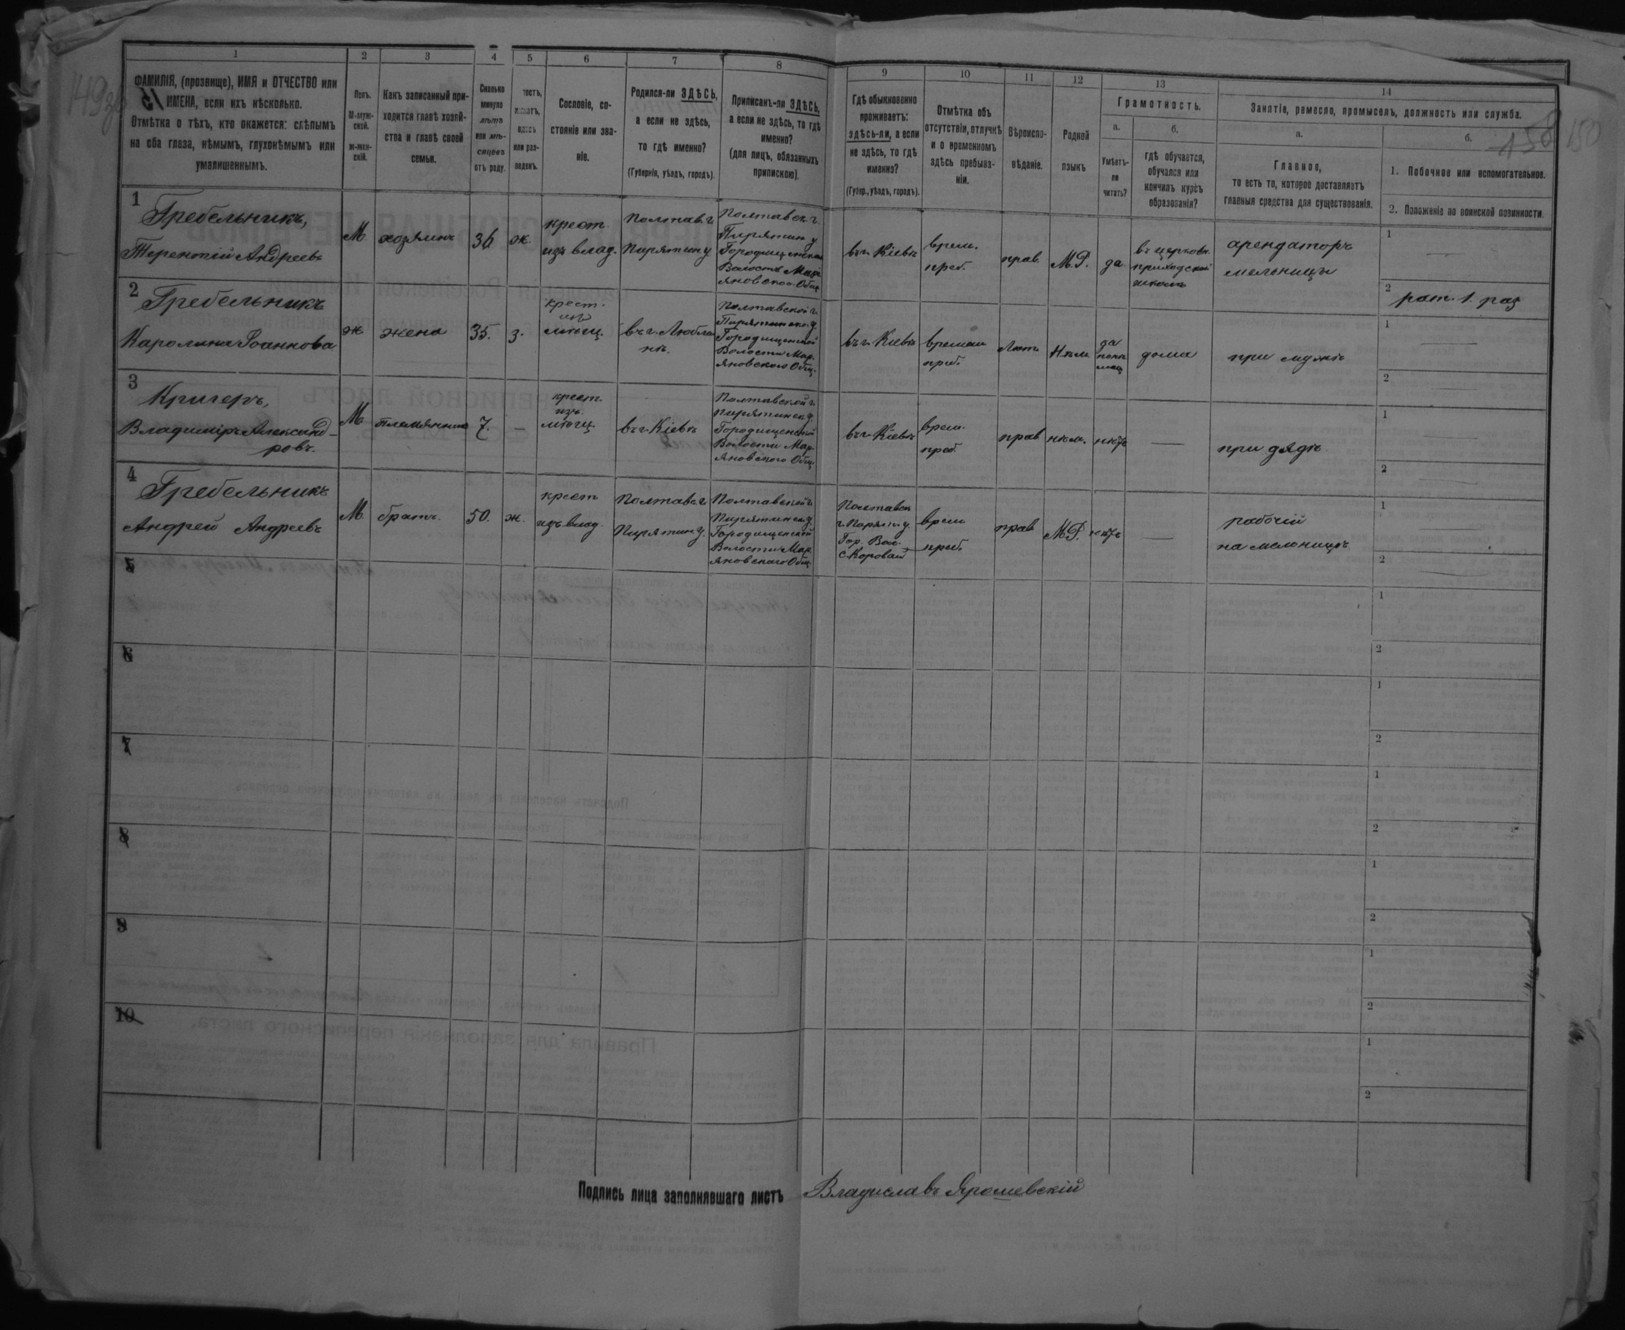 1 2 3 4 5 6 7 8 9 10 11 12 13 14
ФАМИЛІЯ, (прозвище), ИМЯ и ОТЧЕСТВО или
ИМЕНА, если ихъ нѣсколько.
Отмѣтка о тѣхъ, кто окажется: слѣпымъ
на оба глаза, нѣмымъ, глухонѣмымъ или
умалишеннымъ.
Полъ.
М-муж-
ской.
Ж-жен-
скій.
Какъ записанный при-
ходится главѣ хозяй-
ства и главѣ своей
семьи.
Сколько
минуло
лѣтъ
или мѣ-
сяцевъ
отъ роду.
или раз-
веденъ.
Сословіе, со-
стояніе или зва-
ніе.
Родился-ли ЗДѢСЬ,
а если не здѣсь,
то гдѣ именно?
(Губернія, уѣздъ, городъ).
Приписанъ-ли ЗДѢСЬ,
а если не здѣсь, то гдѣ
именно?
(для лицъ, обязанныхъ
припискою).
Гдѣ обыкновенно
проживаетъ:
здѣсь-ли, а если
не здѣсь, то гдѣ
именно?
(Губер., уѣздъ, городъ).
Отмѣтка объ
отсутствіи, отлучкѣ
и о временномъ
здѣсь пребыва-
ніи.
Вѣроиспо-
вѣданіе.
Родной
языкъ
Грамотность.
а.
Умѣетъ-
ли
читать?
б.
гдѣ обучается,
обучался или
кончилъ курсъ
образованія?
Занятіе, ремесло, промыселъ, должность или служба.
а.
Главное,
то есть то, которое доставляетъ
главныя средства для существованія.
б.
1. Побочное или вспомогательное.
2. Положеніе по воинской повинности.
1
Гребельникъ,
Терентій Андреевъ
М
хозяинъ
36
ж.
крест.
изъ влад.
Полтав. г.
Пирятин. у
Полтавск. г.
Пирятин. у
Городищенской
Волости Мар
яновского Общ.
въ г. Кіевѣ
врем.
преб.
прав.
М.Р.
да
въ церковн.
приходской
школѣ
арендаторъ
мельницы
1
2 рат. 1 раз
2
Гребельникъ
Каролина Іоаннова
ж
жена
35.
з.
крест.
изъ
мѣщ.
въ г. Любли
нѣ.
Полтавской г.
Пирятинск. у
Городищенской
Волости Мар
яновского Общ.
въ г. Кіевѣ
времен
преб.
Лют.
Нѣм.
да
дома
при мужѣ
1
2
3
Кригеръ,
Владиміръ Александ-
ровъ.
М
племянникъ
7.
—
крест.
изъ
мѣщ.
въ г. Кіевѣ
Полтавской г.
Пирятинск. у
Городищенской
Волости Мар
яновского Общ.
въ г. Кіевѣ
врем.
преб.
прав
нѣм.
нѣтъ
—
при дядѣ
1
2
4
Гребельникъ
Андрей Андреевъ
М.
братъ.
50.
ж.
крест
изъ влад.
Полтавс. г.
Пирятин. у.
Полтавской г.
Пирятинск. у
Городищенской
Волости Мар
яновского Общ.
Полтавск
г. Пирят. у.
Гор. Вол.
с. Коровай
врем
преб.
прав
М.Р.
нѣтъ
—
рабочій
на мельницѣ
1
2
5
1
2
6
1
2
7
1
2
8
1
2
9
1
2
10
1
2
Подпись лица заполнявшаго листъ Владиславъ Ярошевскій